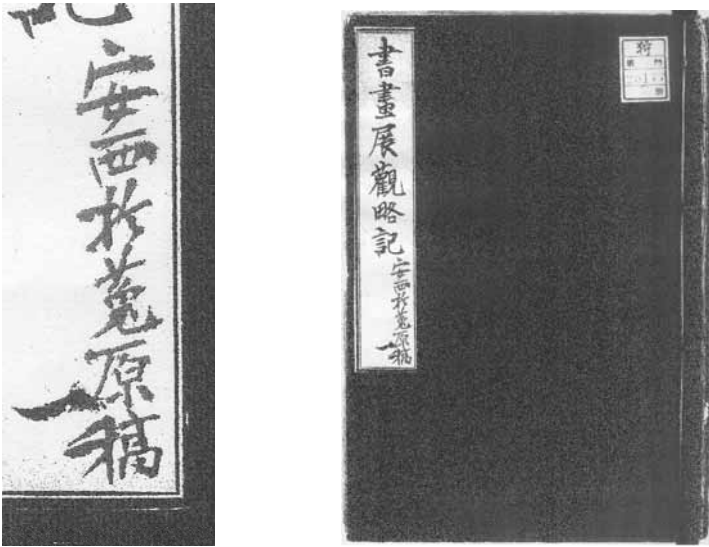 安西於菟原稿
一
書畫展觀略記
安西於菟原稿
一
狩